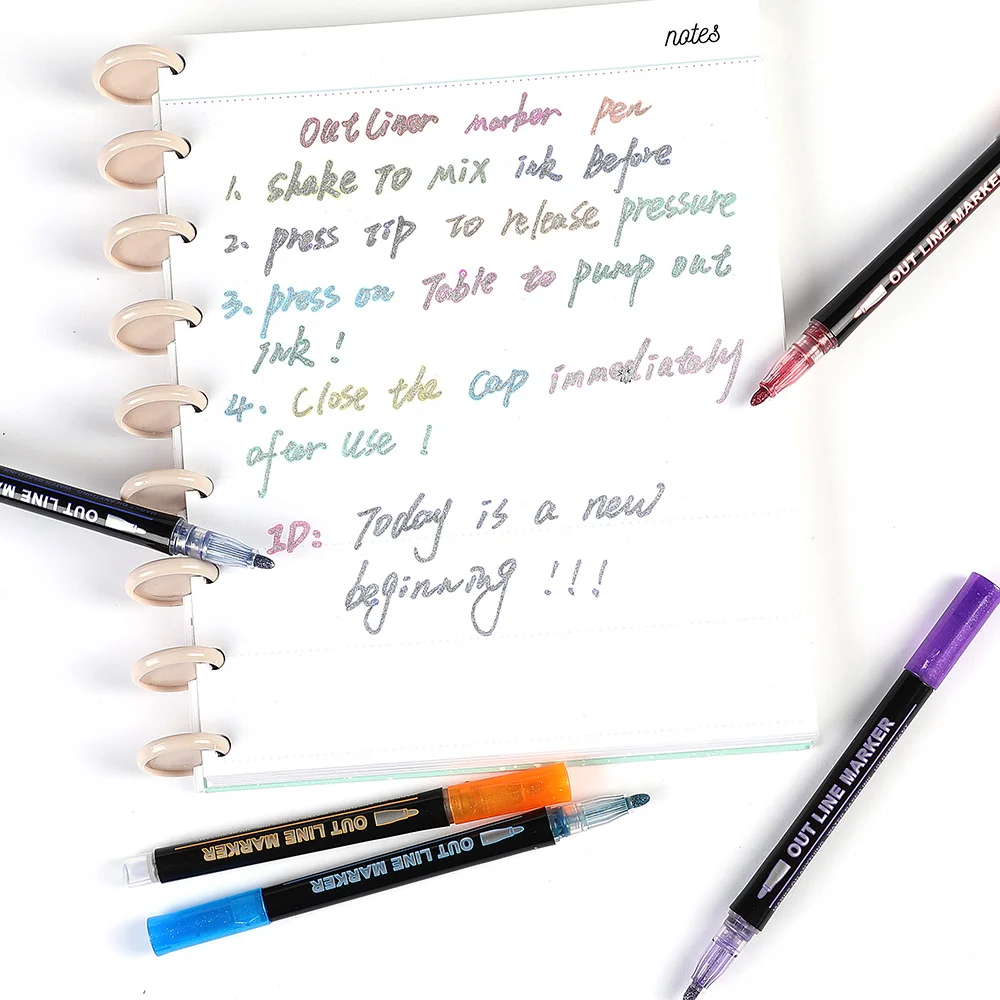 notes
Outliner marker pen
1. shake To Mix ink Before
2. press Tip To release pressure
3. press on Table to pump out
ink !
4. Close the Cap immediately
after Use !
1D: Today is a new
beginning !!!
OUT LINE MARKER
OUT LINE MA
OUT LINE MARKER
OUT LINE MARKER
OUT LINE MARKER